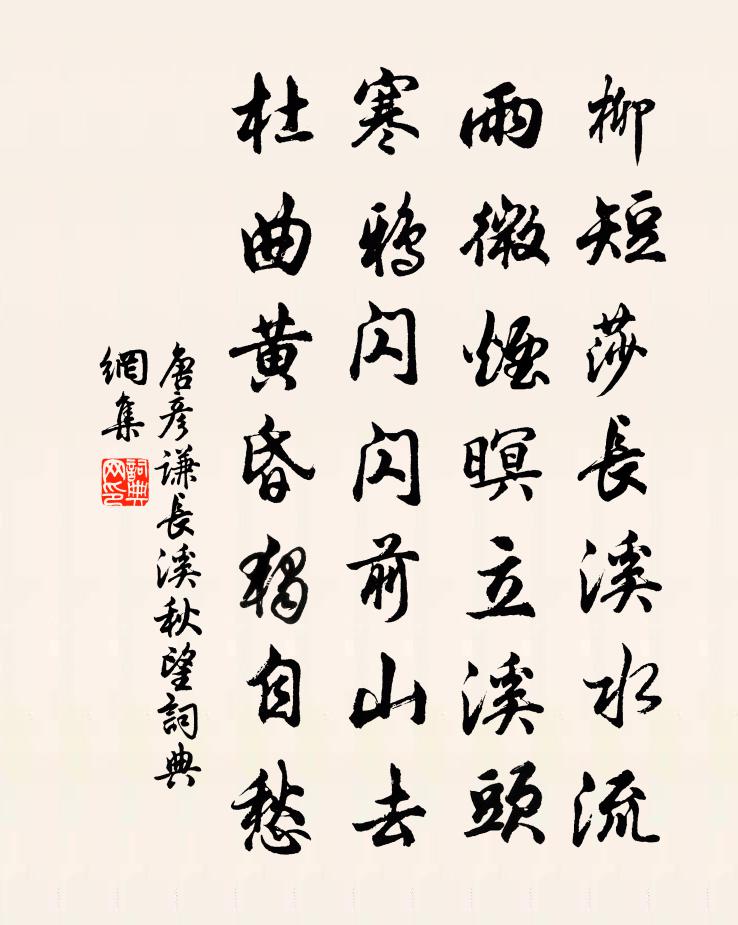 柳短莎長溪水流
雨微煙暝立溪頭
寒鴉閃閃前山去
杜曲黃昏獨自愁
唐彥謙長溪秋望詞典
網集
詞典
网印